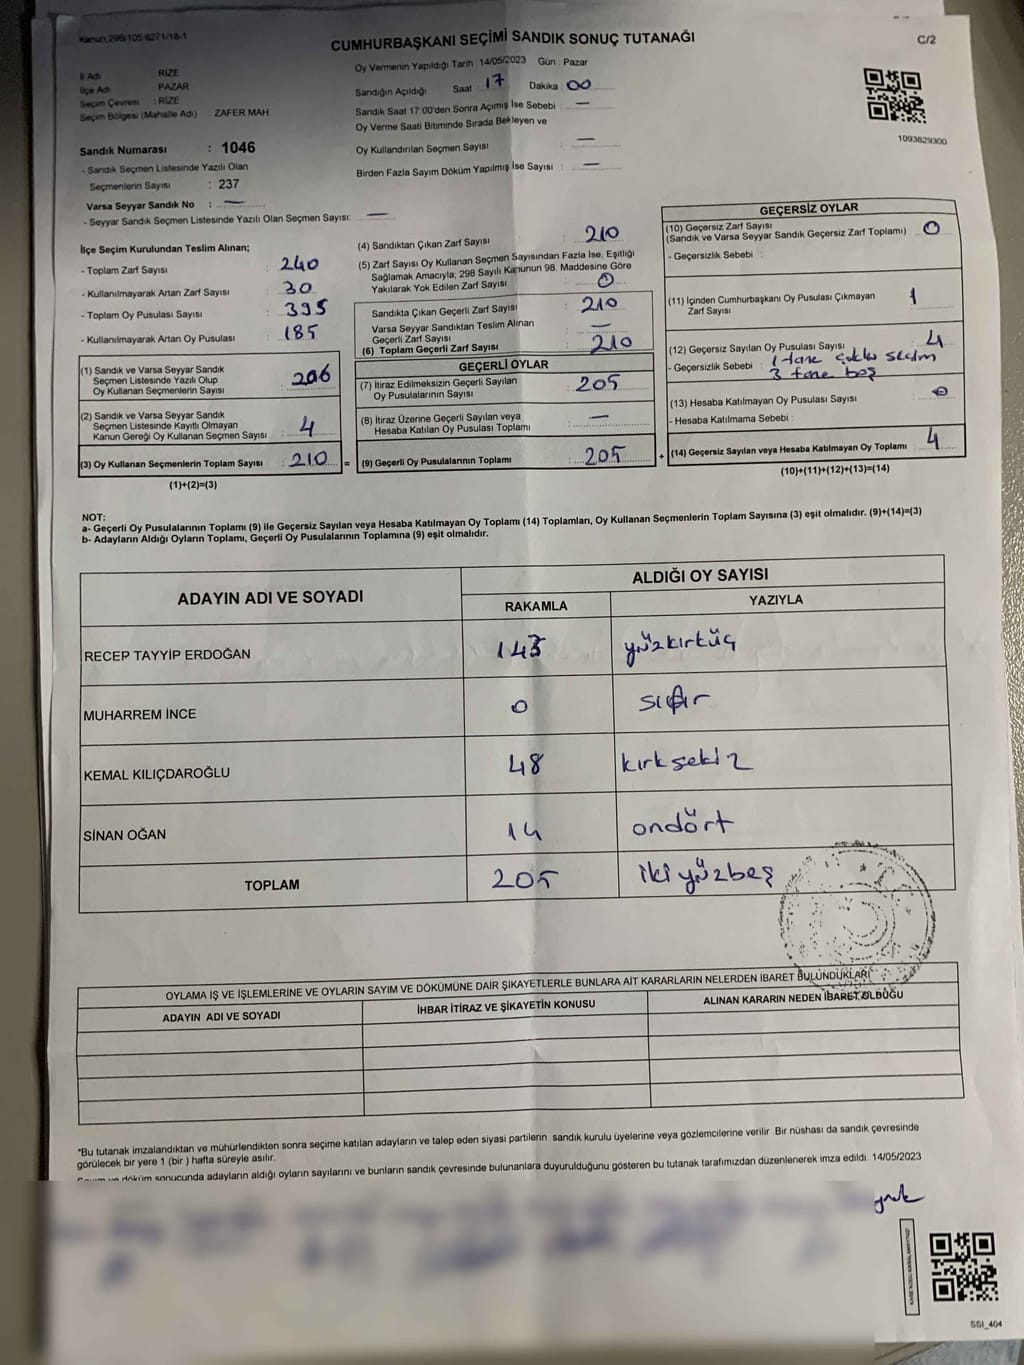 Kanun.298/105.6271/18-1
CUMHURBAŞKANI SEÇİMİ SANDIK SONUÇ TUTANAĞI
C/2
İl Adı RİZE
İlçe Adı PAZAR
Seçim Çevresi : RİZE
Seçim Bölgesi (Mahalle Adı) ZAFER MAH
Oy Vermenin Yapıldığı Tarih : 14/05/2023 Gün : Pazar
Sandığın Açıldığı Saat : 17 Dakika : 00
Sandık Saat 17:00'den Sonra Açımış İse Sebebi : —
Oy Verme Saati Bitiminde Sırada Bekleyen ve
Oy Kullandırılan Seçmen Sayısı : —
Birden Fazla Sayım Döküm Yapılmış İse Sayısı : —
1093829300
Sandık Numarası : 1046
- Sandık Seçmen Listesinde Yazılı Olan
Seçmenlerin Sayısı : 237
Varsa Seyyar Sandık No : —
- Seyyar Sandık Seçmen Listesinde Yazılı Olan Seçmen Sayısı: —
İlçe Seçim Kurulundan Teslim Alınan;
- Toplam Zarf Sayısı : 240
- Kullanılmayarak Artan Zarf Sayısı : 30
- Toplam Oy Pusulası Sayısı : 395
- Kullanılmayarak Artan Oy Pusulası : 185
(1) Sandık ve Varsa Seyyar Sandık
Seçmen Listesinde Yazılı Olup
Oy Kullanan Seçmenlerin Sayısı : 206
(2) Sandık ve Varsa Seyyar Sandık
Seçmen Listesinde Kayıtlı Olmayan
Kanun Gereği Oy Kullanan Seçmen Sayısı : 4
(3) Oy Kullanan Seçmenlerin Toplam Sayısı : 210 =
(1)+(2)=(3)
(4) Sandıktan Çıkan Zarf Sayısı : 210
(5) Zarf Sayısı Oy Kullanan Seçmen Sayısından Fazla İse, Eşitliği
Sağlamak Amacıyla, 298 Sayılı Kanunun 98. Maddesine Göre
Yakılarak Yok Edilen Zarf Sayısı : 0
Sandıkta Çıkan Geçerli Zarf Sayısı : 210
Varsa Seyyar Sandıktan Teslim Alınan
Geçerli Zarf Sayısı : —
(6) Toplam Geçerli Zarf Sayısı : 210
GEÇERLİ OYLAR
(7) İtiraz Edilmeksizin Geçerli Sayılan
Oy Pusulalarının Sayısı : 205
(8) İtiraz Üzerine Geçerli Sayılan veya
Hesaba Katılan Oy Pusulası Toplamı : —
(9) Geçerli Oy Pusulalarının Toplamı : 205 +
GEÇERSİZ OYLAR
(10) Geçersiz Zarf Sayısı : 0
(Sandık ve Varsa Seyyar Sandık Geçersiz Zarf Toplamı)
- Geçersizlik Sebebi :
(11) İçinden Cumhurbaşkanı Oy Pusulası Çıkmayan
Zarf Sayısı : 1
(12) Geçersiz Sayılan Oy Pusulası Sayısı : 4
- Geçersizlik Sebebi : 1 tane çoklu seçim
3 tane boş
(13) Hesaba Katılmayan Oy Pusulası Sayısı : 0
- Hesaba Katılmama Sebebi :
(14) Geçersiz Sayılan veya Hesaba Katılmayan Oy Toplamı : 4
(10)+(11)+(12)+(13)=(14)
NOT:
a- Geçerli Oy Pusulalarının Toplamı (9) ile Geçersiz Sayılan veya Hesaba Katılmayan Oy Toplamı (14) Toplamları, Oy Kullanan Seçmenlerin Toplam Sayısına (3) eşit olmalıdır. (9)+(14)=(3)
b- Adayların Aldığı Oyların Toplamı, Geçerli Oy Pusulalarının Toplamına (9) eşit olmalıdır.
ADAYIN ADI VE SOYADI
ALDIĞI OY SAYISI
RAKAMLA YAZIYLA
RECEP TAYYİP ERDOĞAN 143 yüzkırküç
MUHARREM İNCE 0 sıfır
KEMAL KILIÇDAROĞLU 48 kırksekiz
SİNAN OĞAN 14 ondört
TOPLAM 205 ikiyüzbeş
OYLAMA İŞ VE İŞLEMLERİNE VE OYLARIN SAYIM VE DÖKÜMÜNE DAİR ŞİKAYETLERLE BUNLARA AİT KARARLARIN NELERDEN İBARET BULUNDUKLARI
ADAYIN ADI VE SOYADI İHBAR İTİRAZ VE ŞİKAYETİN KONUSU ALINAN KARARIN NEDEN İBARET OLDUĞU
*Bu tutanak imzalandıktan ve mühürlendikten sonra seçime katılan adayların ve talep eden siyasi partilerin sandık kurulu üyelerine veya gözlemcilerine verilir .Bir nüshası da sandık çevresinde
görülecek bir yere 1 (bir ) hafta süreyle asılır.
Sayım ve döküm sonucunda adayların aldığı oyların sayılarını ve bunların sandık çevresinde bulunanlara duyurulduğunu gösteren bu tutanak tarafımızdan düzenlenerek imza edildi. 14/05/2023
SSI_404